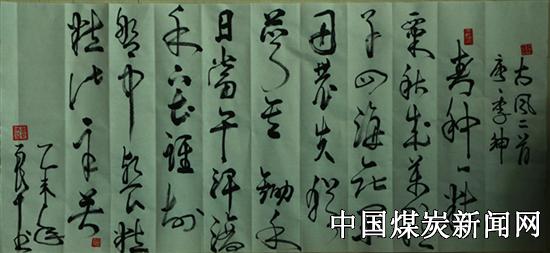 古风二首
唐·李绅
春种一粒
粟秋成万颗
子四海无闲
田農夫犹
饿死 鋤禾
日當午汗滴
禾下土谁知
盘中飧粒
粒皆辛苦
乙未年
中国煤炭新闻网